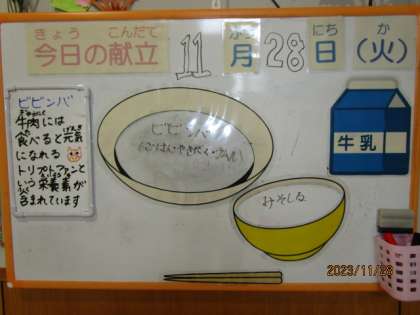 きょう こんだて
今日の献立 11月28日(火)
がつ にち か
ビビンバ
牛肉には
食べると元気
になれる
トリプトファンと
いう栄養素が
含まれています
ビビンバ
みそしる
牛乳
2023/11/28